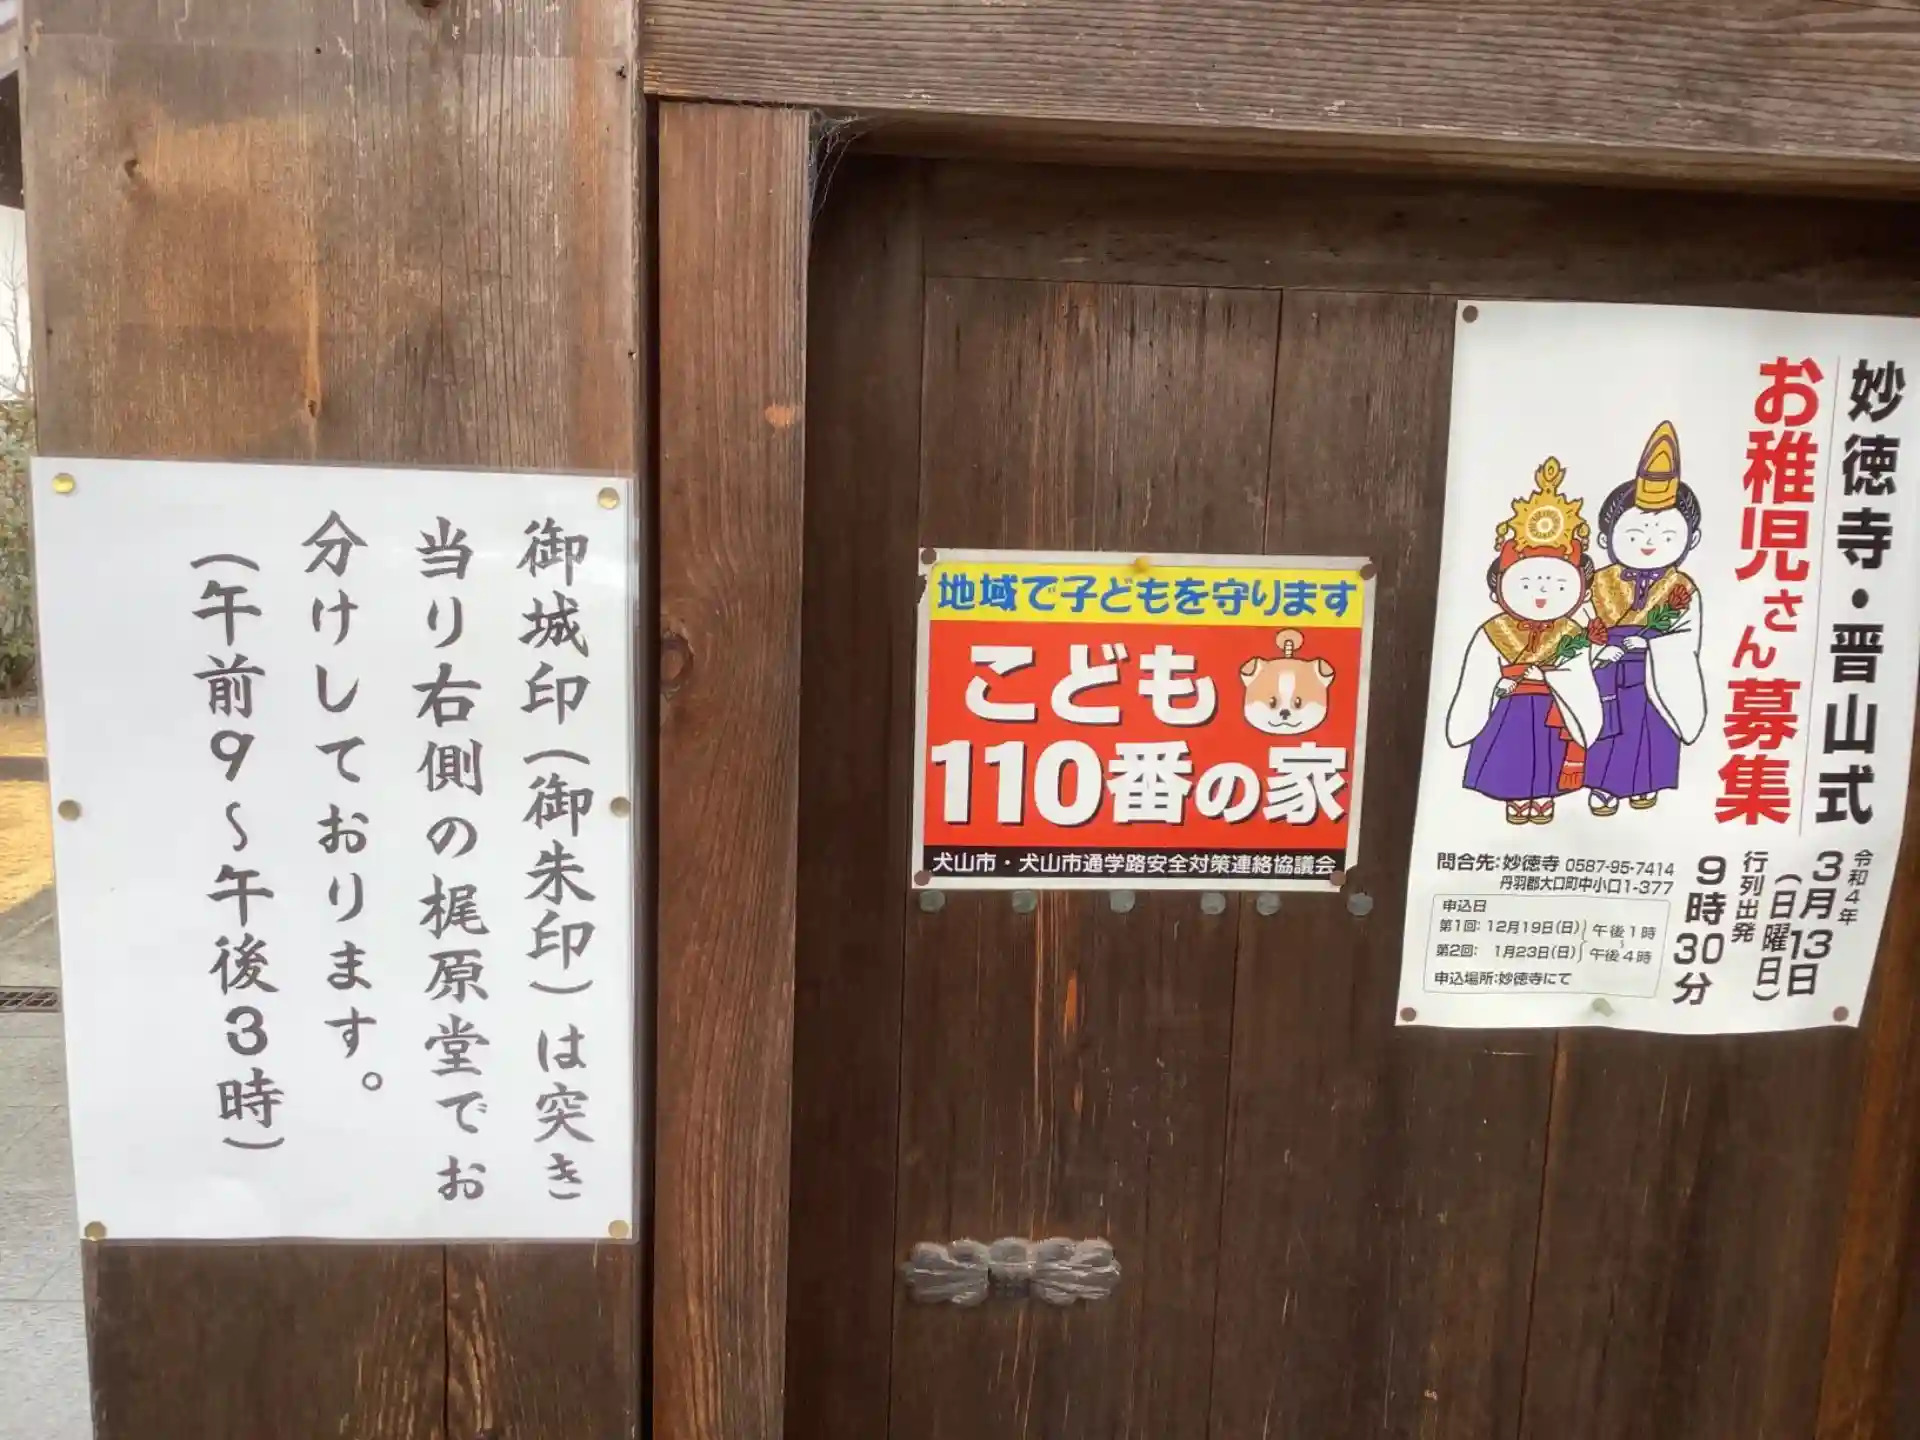 御城印(御朱印)は突き
当り右側の梶原堂でお
分けしております。
(午前9〜午後3時)
地域で子どもを守ります
こども
110番の家
犬山市・犬山市通学路安全対策連絡協議会
妙徳寺・晋山式
お稚児さん募集
令和4年
3月13日
(日曜日)
行列出発
9時30分
問合先:妙徳寺 0587-95-7414
丹羽郡大口町中小口1-377
申込日
第1回: 12月19日(日) 午後1時
〜
第2回: 1月23日(日) 午後4時
申込場所:妙徳寺にて